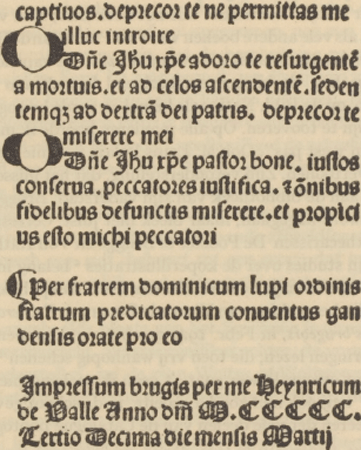 captiuos. deprecor te ne permittas me
illuc introire
O Dñe Jhu xp̄e adoro te resurgentē
a mortuis. et ad celos ascendentē. seden
temqꝫ ad dextrā dei patris. deprecor te
miserere mei
O Dñe Jhu xp̄e pastor bone. iustos
conserua. peccatores iustifica. ⁊ õnibus
fidelibus defunctis miserere. et propici
us esto michi peccatori
¶ Per fratrem dominicum lupi ordinis
fratrum predicatorum conuentus gan
densis orate pro eo
Impressum brugis per me Heynricum
de Valle Anno dñi M. CCCCC.
Tertio Decima die mensis Martij